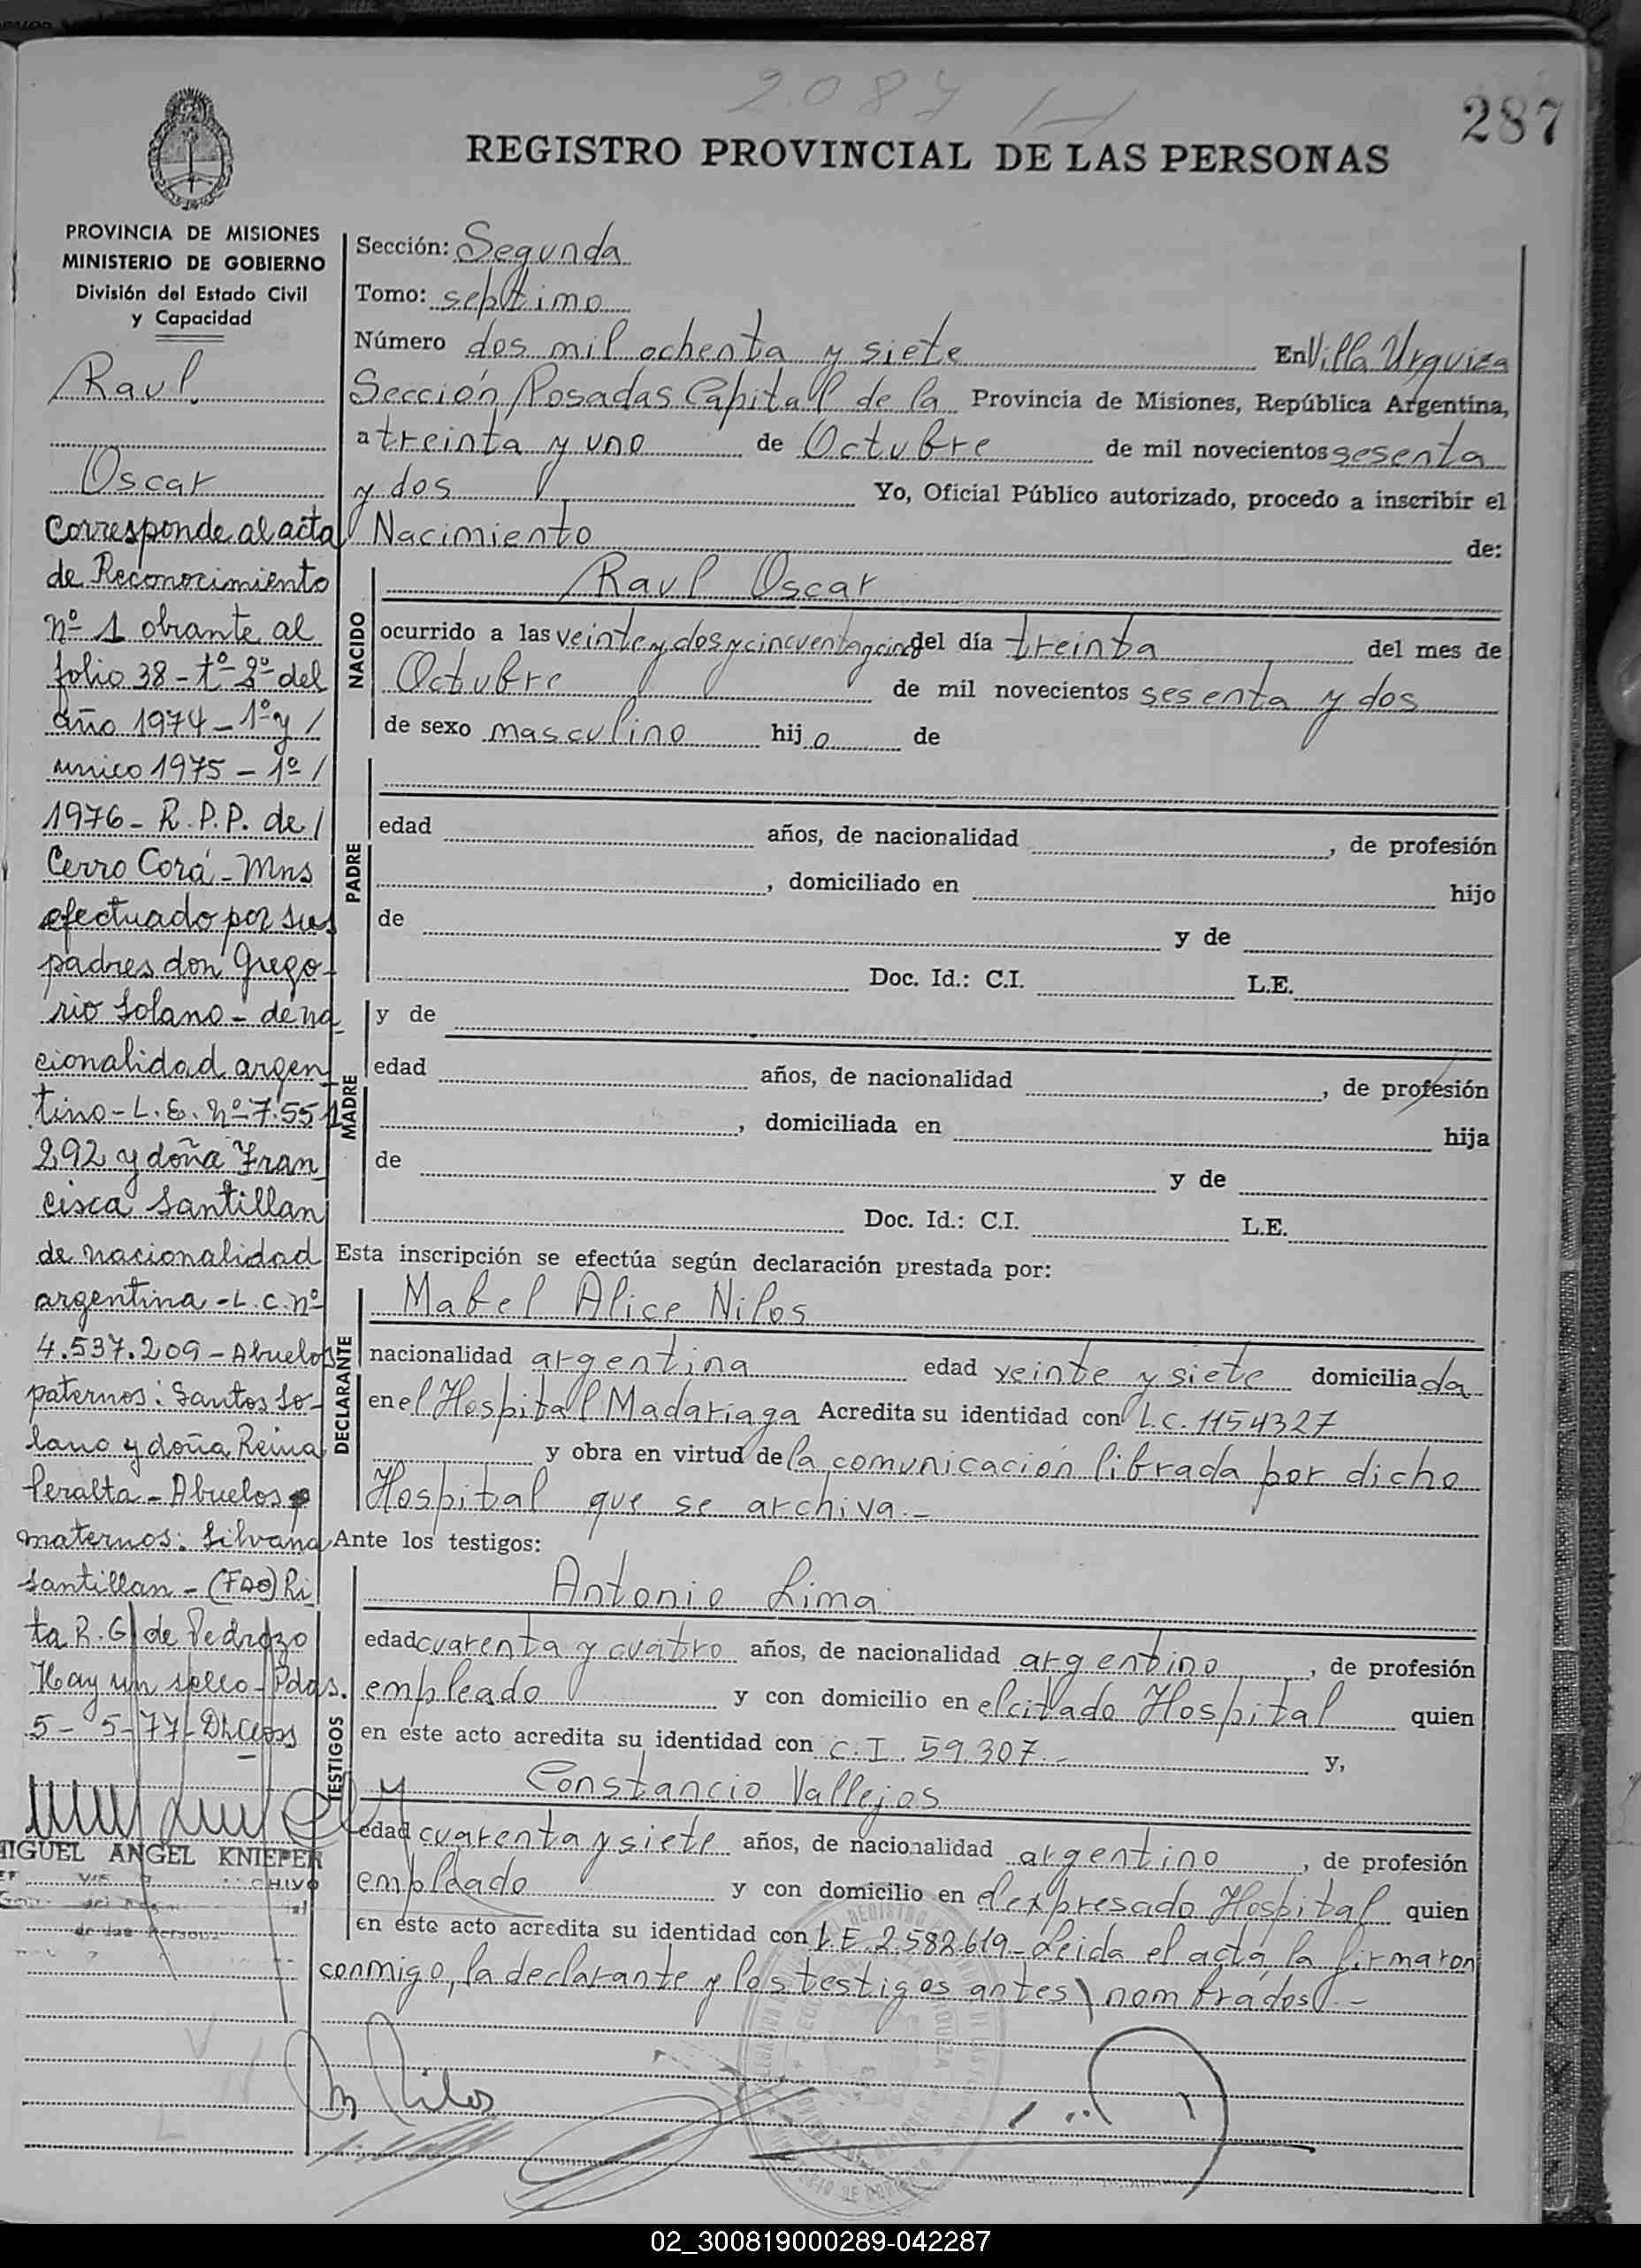 2087
287
REGISTRO PROVINCIAL DE LAS PERSONAS
PROVINCIA DE MISIONES
MINISTERIO DE GOBIERNO
División del Estado Civil
y Capacidad
Raul
Oscar
Corresponde al acta
de Reconocimiento
nº 1 obrante al
folio 38 - tº 2º del
año 1974 - 1º y /
unico 1975 - 1º /
1976 - R.P.P. de /
Cerro Corá - Mns
efectuado por sus
padres don Grego-
rio Solano - de na
cionalidad argen
tino - L.E. Nº 7.551
292 y doña Fran
cisca Santillan
de nacionalidad
argentina - L.C. nº
4.537.209 - Abuelos
paternos: Santos So-
lano y doña Reina
Peralta - Abuelos
maternos: Silvana
Santillan - (FDO) Ri
ta R. G. de Pedrozo
Hay un sello - Pdas.
5 - 5 - 77 -
MIGUEL ANGEL KNIEPER
Sección: Segunda
Tomo: septimo
Número dos mil ochenta y siete En Villa Urquiza
Sección Posadas Capital de la Provincia de Misiones, República Argentina,
a treinta y uno de Octubre de mil novecientos sesenta
y dos Yo, Oficial Público autorizado, procedo a inscribir el
Nacimiento de:
NACIDO
Raul Oscar
ocurrido a las veinte y dos y cincuenta y cinco del día treinta del mes de
Octubre de mil novecientos sesenta y dos
de sexo masculino hijo de
PADRE
edad años, de nacionalidad , de profesión
, domiciliado en hijo
de y de
Doc. Id.: C.I. L.E.
MADRE
y de
edad años, de nacionalidad , de profesión
, domiciliada en hija
de y de
Doc. Id.: C.I. L.E.
Esta inscripción se efectúa según declaración prestada por:
DECLARANTE
Mabel Alice Nilos
nacionalidad argentina edad veinte y siete domiciliada
en el Hospital Madariaga Acredita su identidad con L.C. 1154327
y obra en virtud de la comunicación librada por dicho
Hospital que se archiva.-
Ante los testigos:
TESTIGOS
Antonio Lima
edad cuarenta y cuatro años, de nacionalidad argentino, de profesión
empleado y con domicilio en el citado Hospital quien
en este acto acredita su identidad con C.I. 59.307.- y,
Constancio Vallejos
edad cuarenta y siete años, de nacionalidad argentino, de profesión
empleado y con domicilio en el expresado Hospital quien
en este acto acredita su identidad con L.E. 2.582.619 - Leida el acta, la firmaron
conmigo, la declarante y los testigos antes nombrados.-
M Nilos
02_300819000289-042287